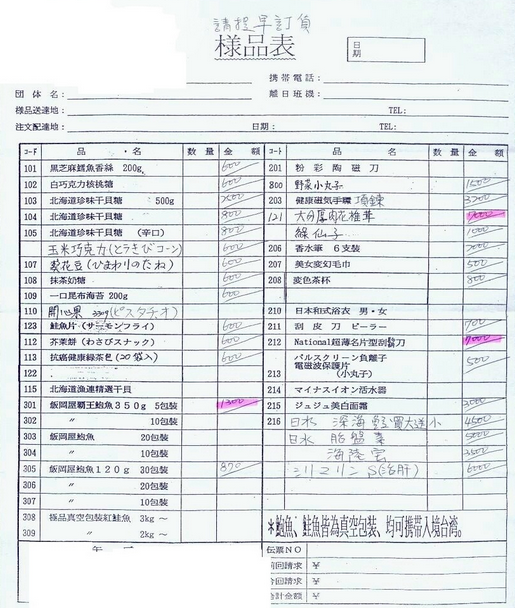 請提早訂貨
様品表
日期
携帯電話：
団体名：
離日班機：
様品送達地：
TEL：
注文配達地：
日期：
TEL：
ｺｰﾄﾞ 品・名 数量 金額
101 黒芝麻鱈魚香絲 200g 600
102 白巧克力核桃糖 600
103 北海道珍味干貝糖 500g
104 北海道珍味干貝糖 800
105 北海道珍味干貝糖 （辛口） 800
玉米巧克力(とうきびコーン) 600
107 葵花豆(ひまわりのたね) 600
108 抹茶奶糖 600
109 一口昆布海苔 200g 600
110 開心果 (ピスタチオ)
123 鮭魚片 (サーモンフライ) 600
112 芥茉餅 (わさびスナック) 600
113 抗癌健康緑茶包 (20袋入) 600
122
115 北海道漁連精選干貝
301 飯岡屋覇王鮑魚350g 5包装 1300
302 〃 10包装
303 飯岡屋鮑魚 20包装
304 〃 10包装
305 飯岡屋鮑魚120g 30包装 870
306 〃 20包装
307 〃 10包装
308 極品真空包装紅鮭魚 3kg～
309 〃 2kg～
ｺｰﾄ 品・名 数量 金額
201 粉彩陶磁刀
800 野菜小丸子 1500
203 健康磁気手環 項鍊 3700
121 大分厚肉花椎茸
線仙子 1000
206 香水筆 6支裝
207 美女変幻毛巾 500
208 変色茶杯 800
210 日本和式浴衣 男・女
211 刮皮刀 ピーラー 700
212 National超薄名片型刮鬍刀 7000
パルスクリーン負離子
電磁波保護片 500
213 （小丸子）
214 マイナスイオン活水器
215 ジュジュ美白面霜 3000
216 日水 深海 買大送小 4500
日水 胎盤素 5000
海陸雲 3500
シリマリン S(治肝) 6000
*鮑魚、鮭魚皆為真空包装、均可携帯入境台湾。
伝票NO
前回請求 ￥
今回請求 ￥
合計金額 ￥